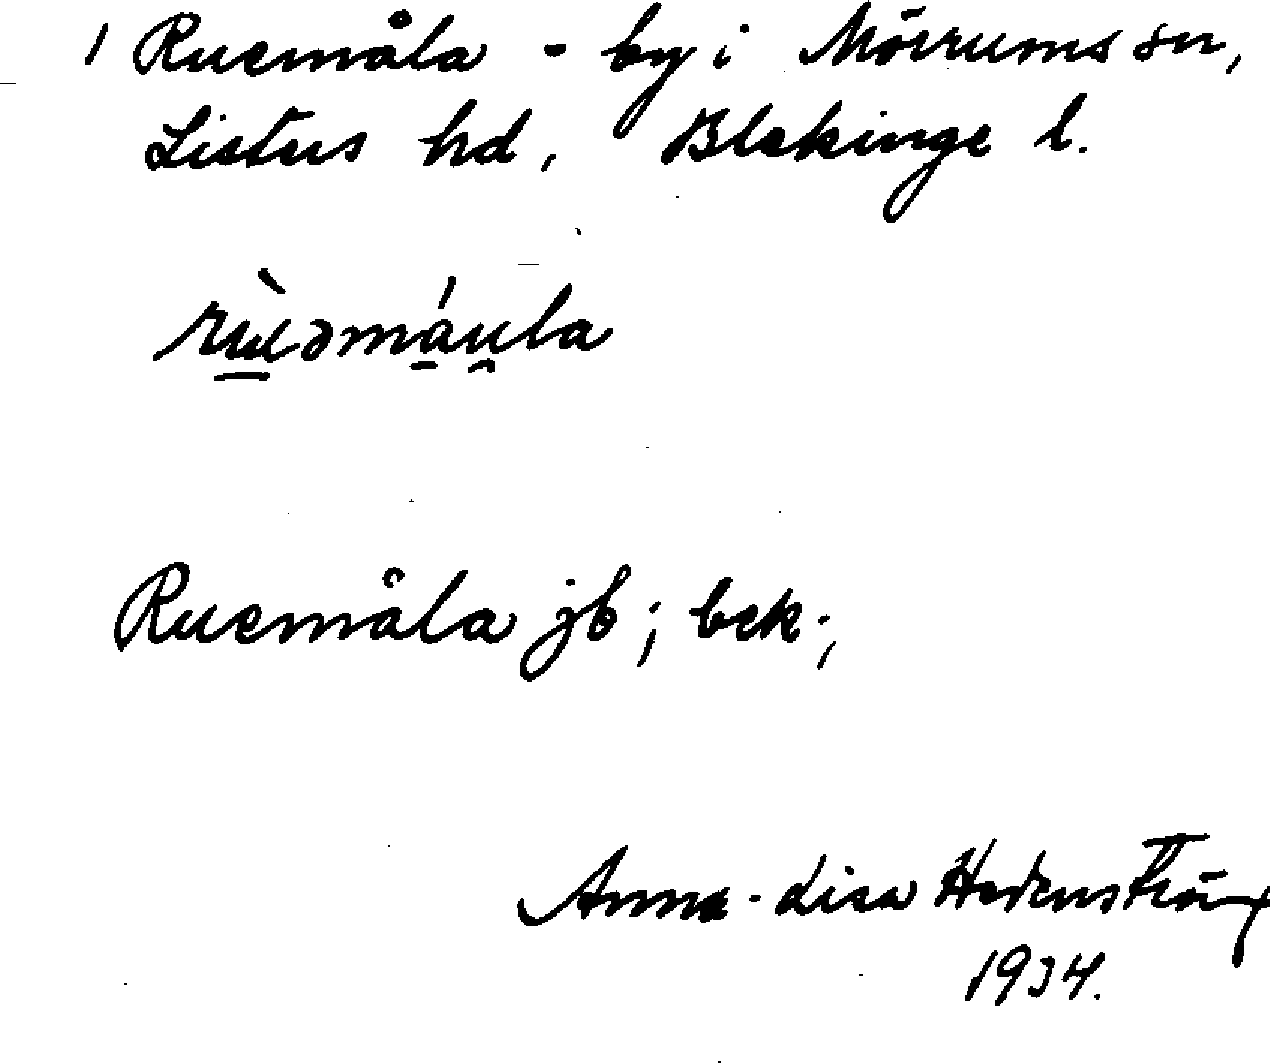 / Ruemåla - by i Mörrums sn,
Listers hd, Blekinge l.
rùɯəmáu̯la
Ruemåla jb; bek.;
Anna-Lisa Hedenström
1934.